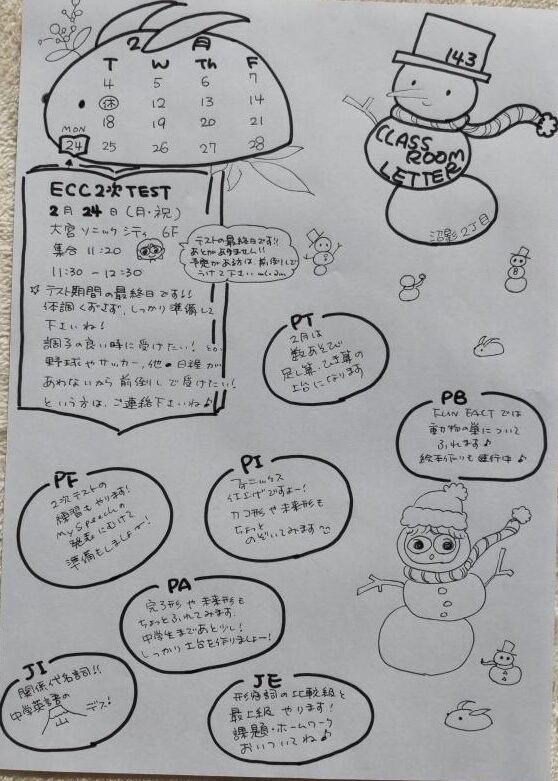 2 月
T W Th F
4 5 6 7
休 12 13 14
18 19 20 21
MON
24 25 26 27 28
143
CLASS
ROOM
LETTER
沼影2丁目
ECC 2次TEST
2月 24日 (月・祝)
大宮 ソニック シティ 6F
集合 11:20
11:30 - 12:30
☆ テスト期間の最終日です!!
体調くずさず、しっかり準備して
下さいね!
調子の良い時に受けたい! とか
野球やサッカー、他の日程が
あわないから 前倒しで受けたい!
という方は、ご連絡下さいね♪
テストの最終日です!!
あとがありません!!
予定がある方は、前倒しで
うけて下さい m(_ _)m
PT
2月は
数あそび
足し算・ひき算の
土台になります
PB
FUN FACT では
動物の巣について
ふれます♪
絵本作りも進行中♪
PF
2次テストの
練習もやります!
My Speechの
発表にむけて
準備もしましょう!
PI
フォニックス
仕上げですよー!
カコ形や未来形も
ちょっと
のぞいてみます
PA
完了形や未来形も
ちょっとふれてみます。
中学生まであと少し!
しっかり土台を作りましょー!
JI
関係代名詞!!
中学英語の
山 デス!
JE
形容詞の比較級と
最上級 やります!
課題・ホームワーク
おいついてね♪